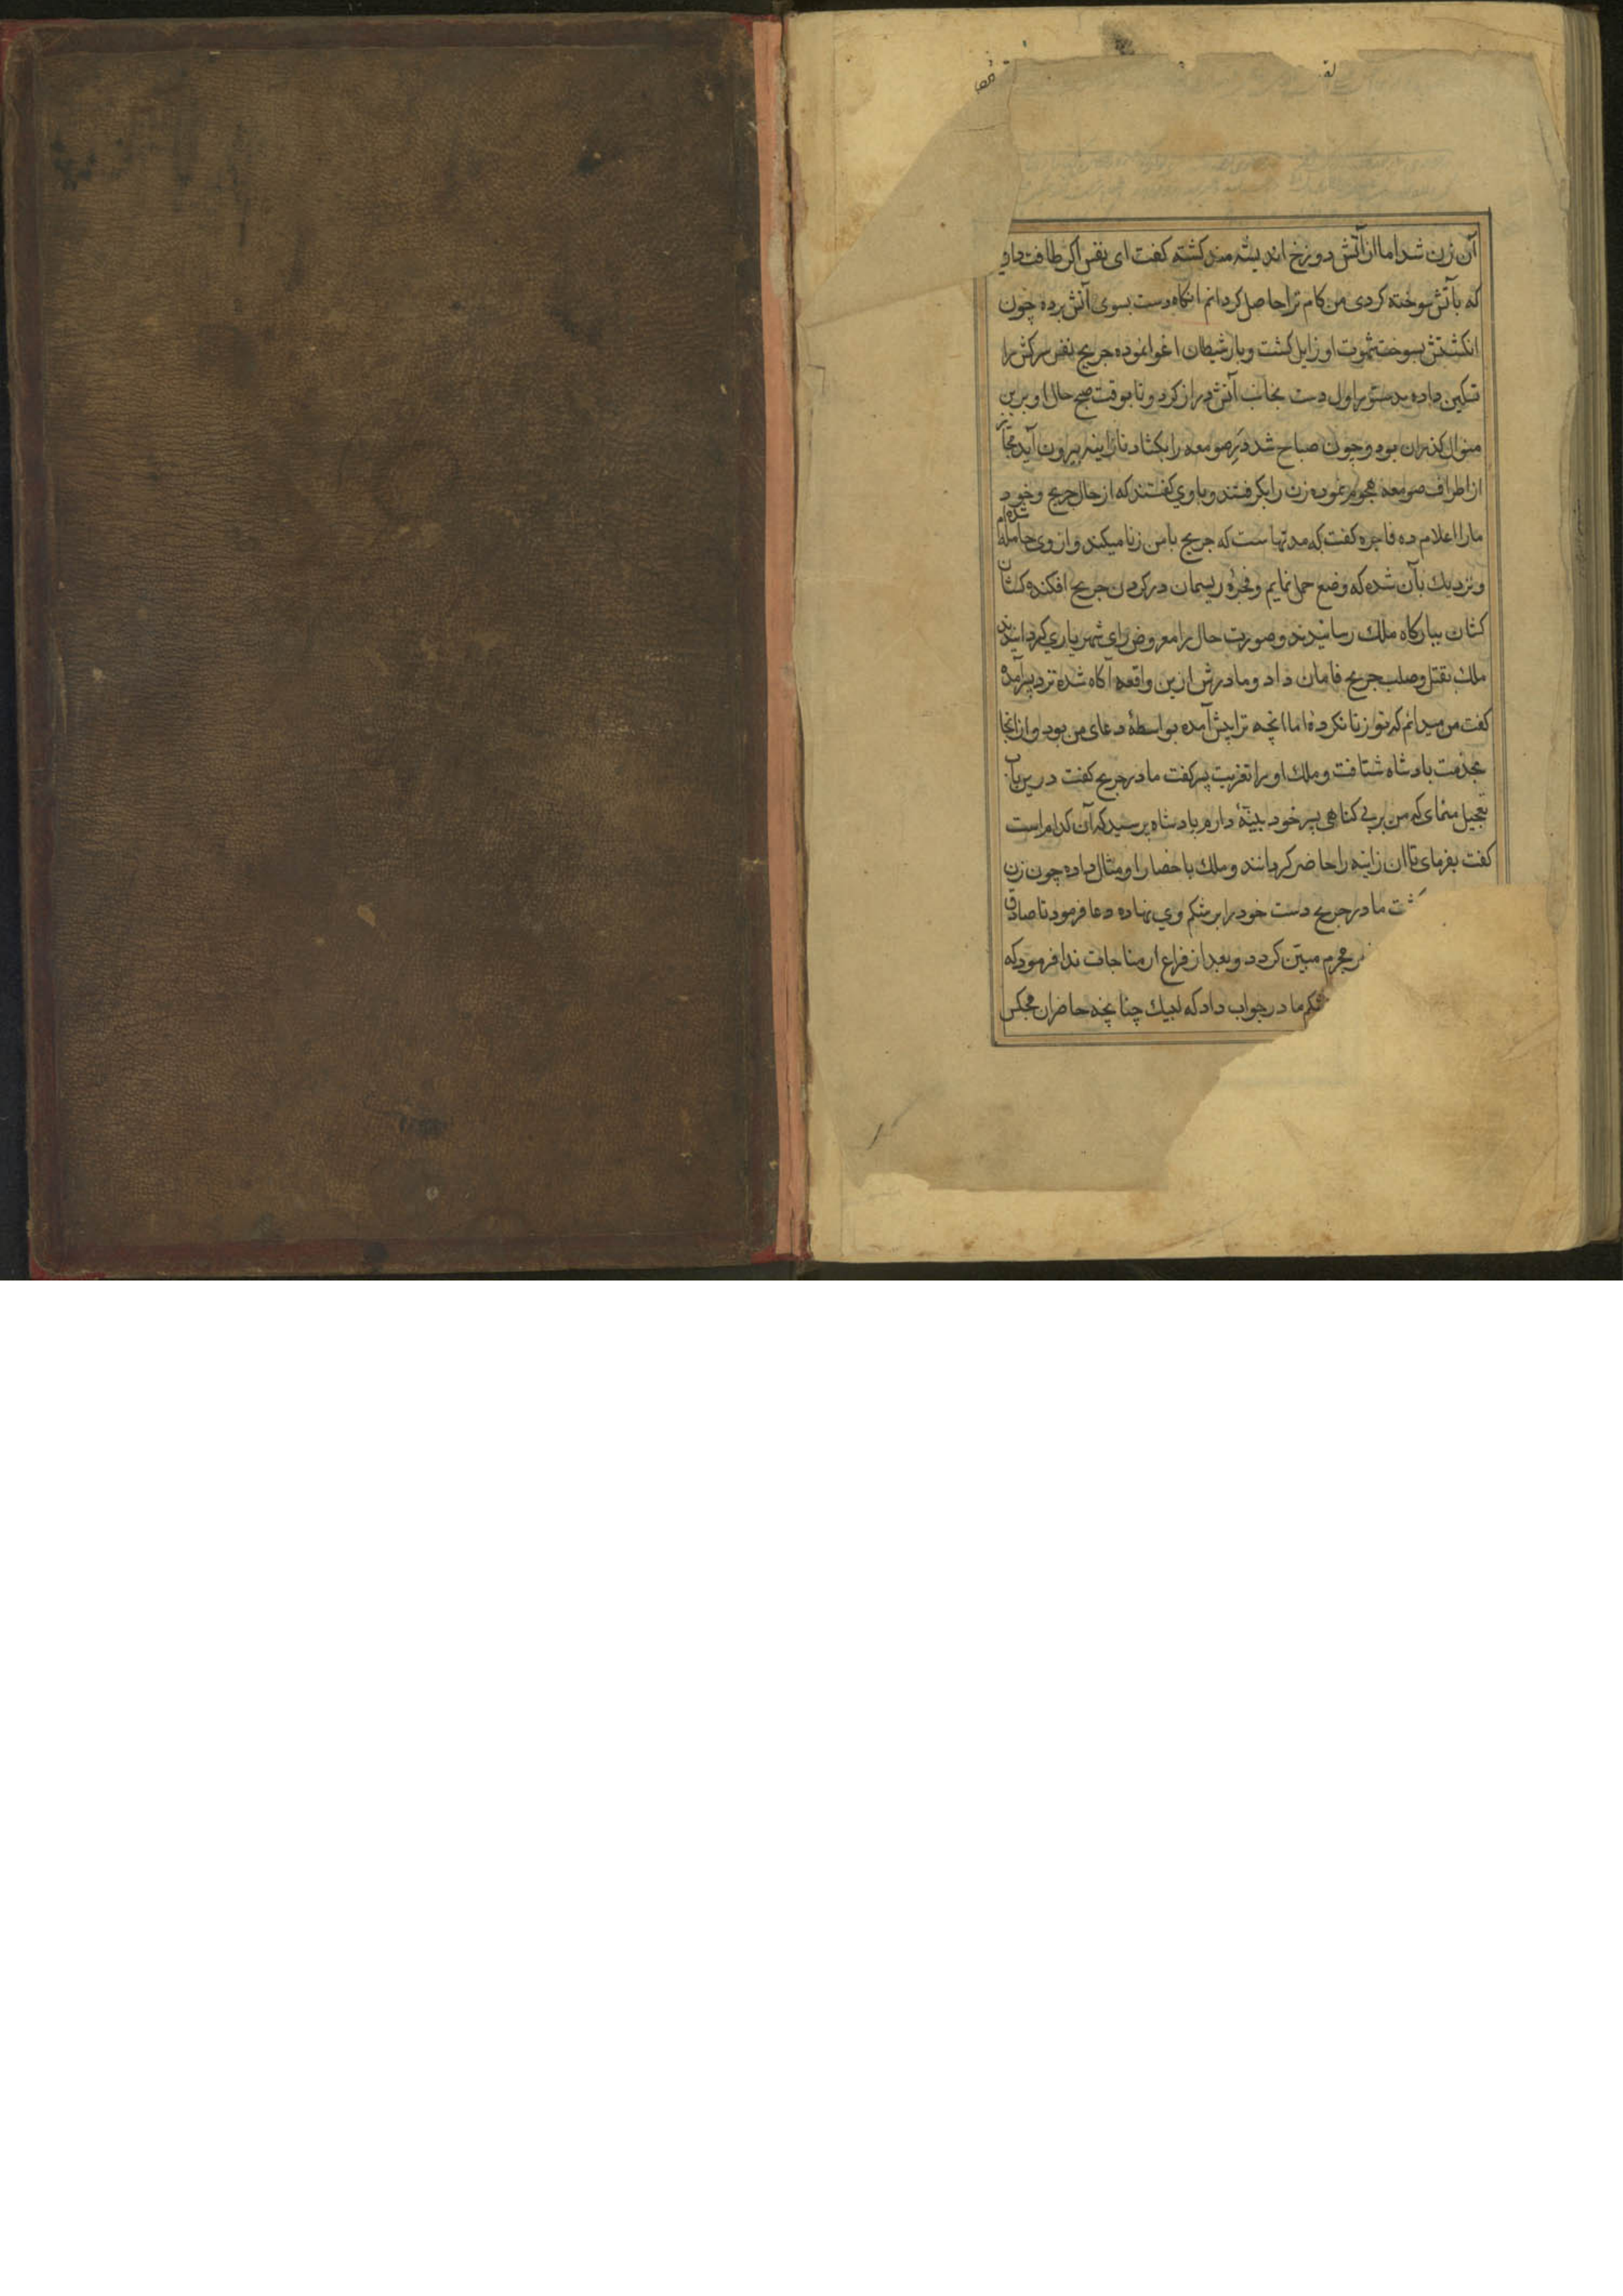 آن زن شد اما از آتش دوزخ اندیشه مند کشته کفت ای نفس اکر طاقت داری
که بآتش سوخته کردی من کام ترا حاصل کردانم انکاه دست بسوی آتش برده چون
انکشتش بسوخت شهوت او زایل کشت و باز شیطان اغوا نموده جریج نفس سرکش را
تسکین داده بدستور اول دست بجانب آتش دراز کرد و تا بوقت صبح حال او برین
منوال کذران بود و چون صباح شد در صومعه را بکشاد تا زانیه بیرون آید
از اطراف صومعه هجوم نموده زن را بکرفتند و با وی کفتند که از حال جریج و خود
مارا اعلام ده فاجره کفت که مدتهاست که جریج با من زنا میکند و از وی حامله شده ام
و نزدیك بآن شده که وضع حمل نمایم و فجره ریسمان در کردن جریج افکنده کشان
کشان ببارکاه ملك رسانیدند و صورت حال را معروض رای شهریاری کردانیدند
ملك بقتل و صلب جریج فرمان داد و مادرش ازین واقعه آکاه شده نزد پسر آمده
کفت من میدانم که تو زنا نکرده اما انچه ترا پیش آمده بواسطهٔ دعای من بود و از انجا
بخدمت بادشاه شتافت و ملك او را تعزیت پسر کفت مادر جریج کفت درین باب
تعجیل منمای که من بر بی کناهی پسر خود بینهٔ دارم بادشاه پرسید که آن کدام است
کفت بفرمای تا ان زانیه را حاضر کردانند و ملك باحضار او مثال داده چون زن
مادر جریج دست خود را بر شکم وی نهاده دعا فرمود تا صادق
مجرم مبین کردد و بعد از فراغ از مناجات ندا فرمود که
شکم مادر جواب داد که لبیك چنانچه حاضران مجلس